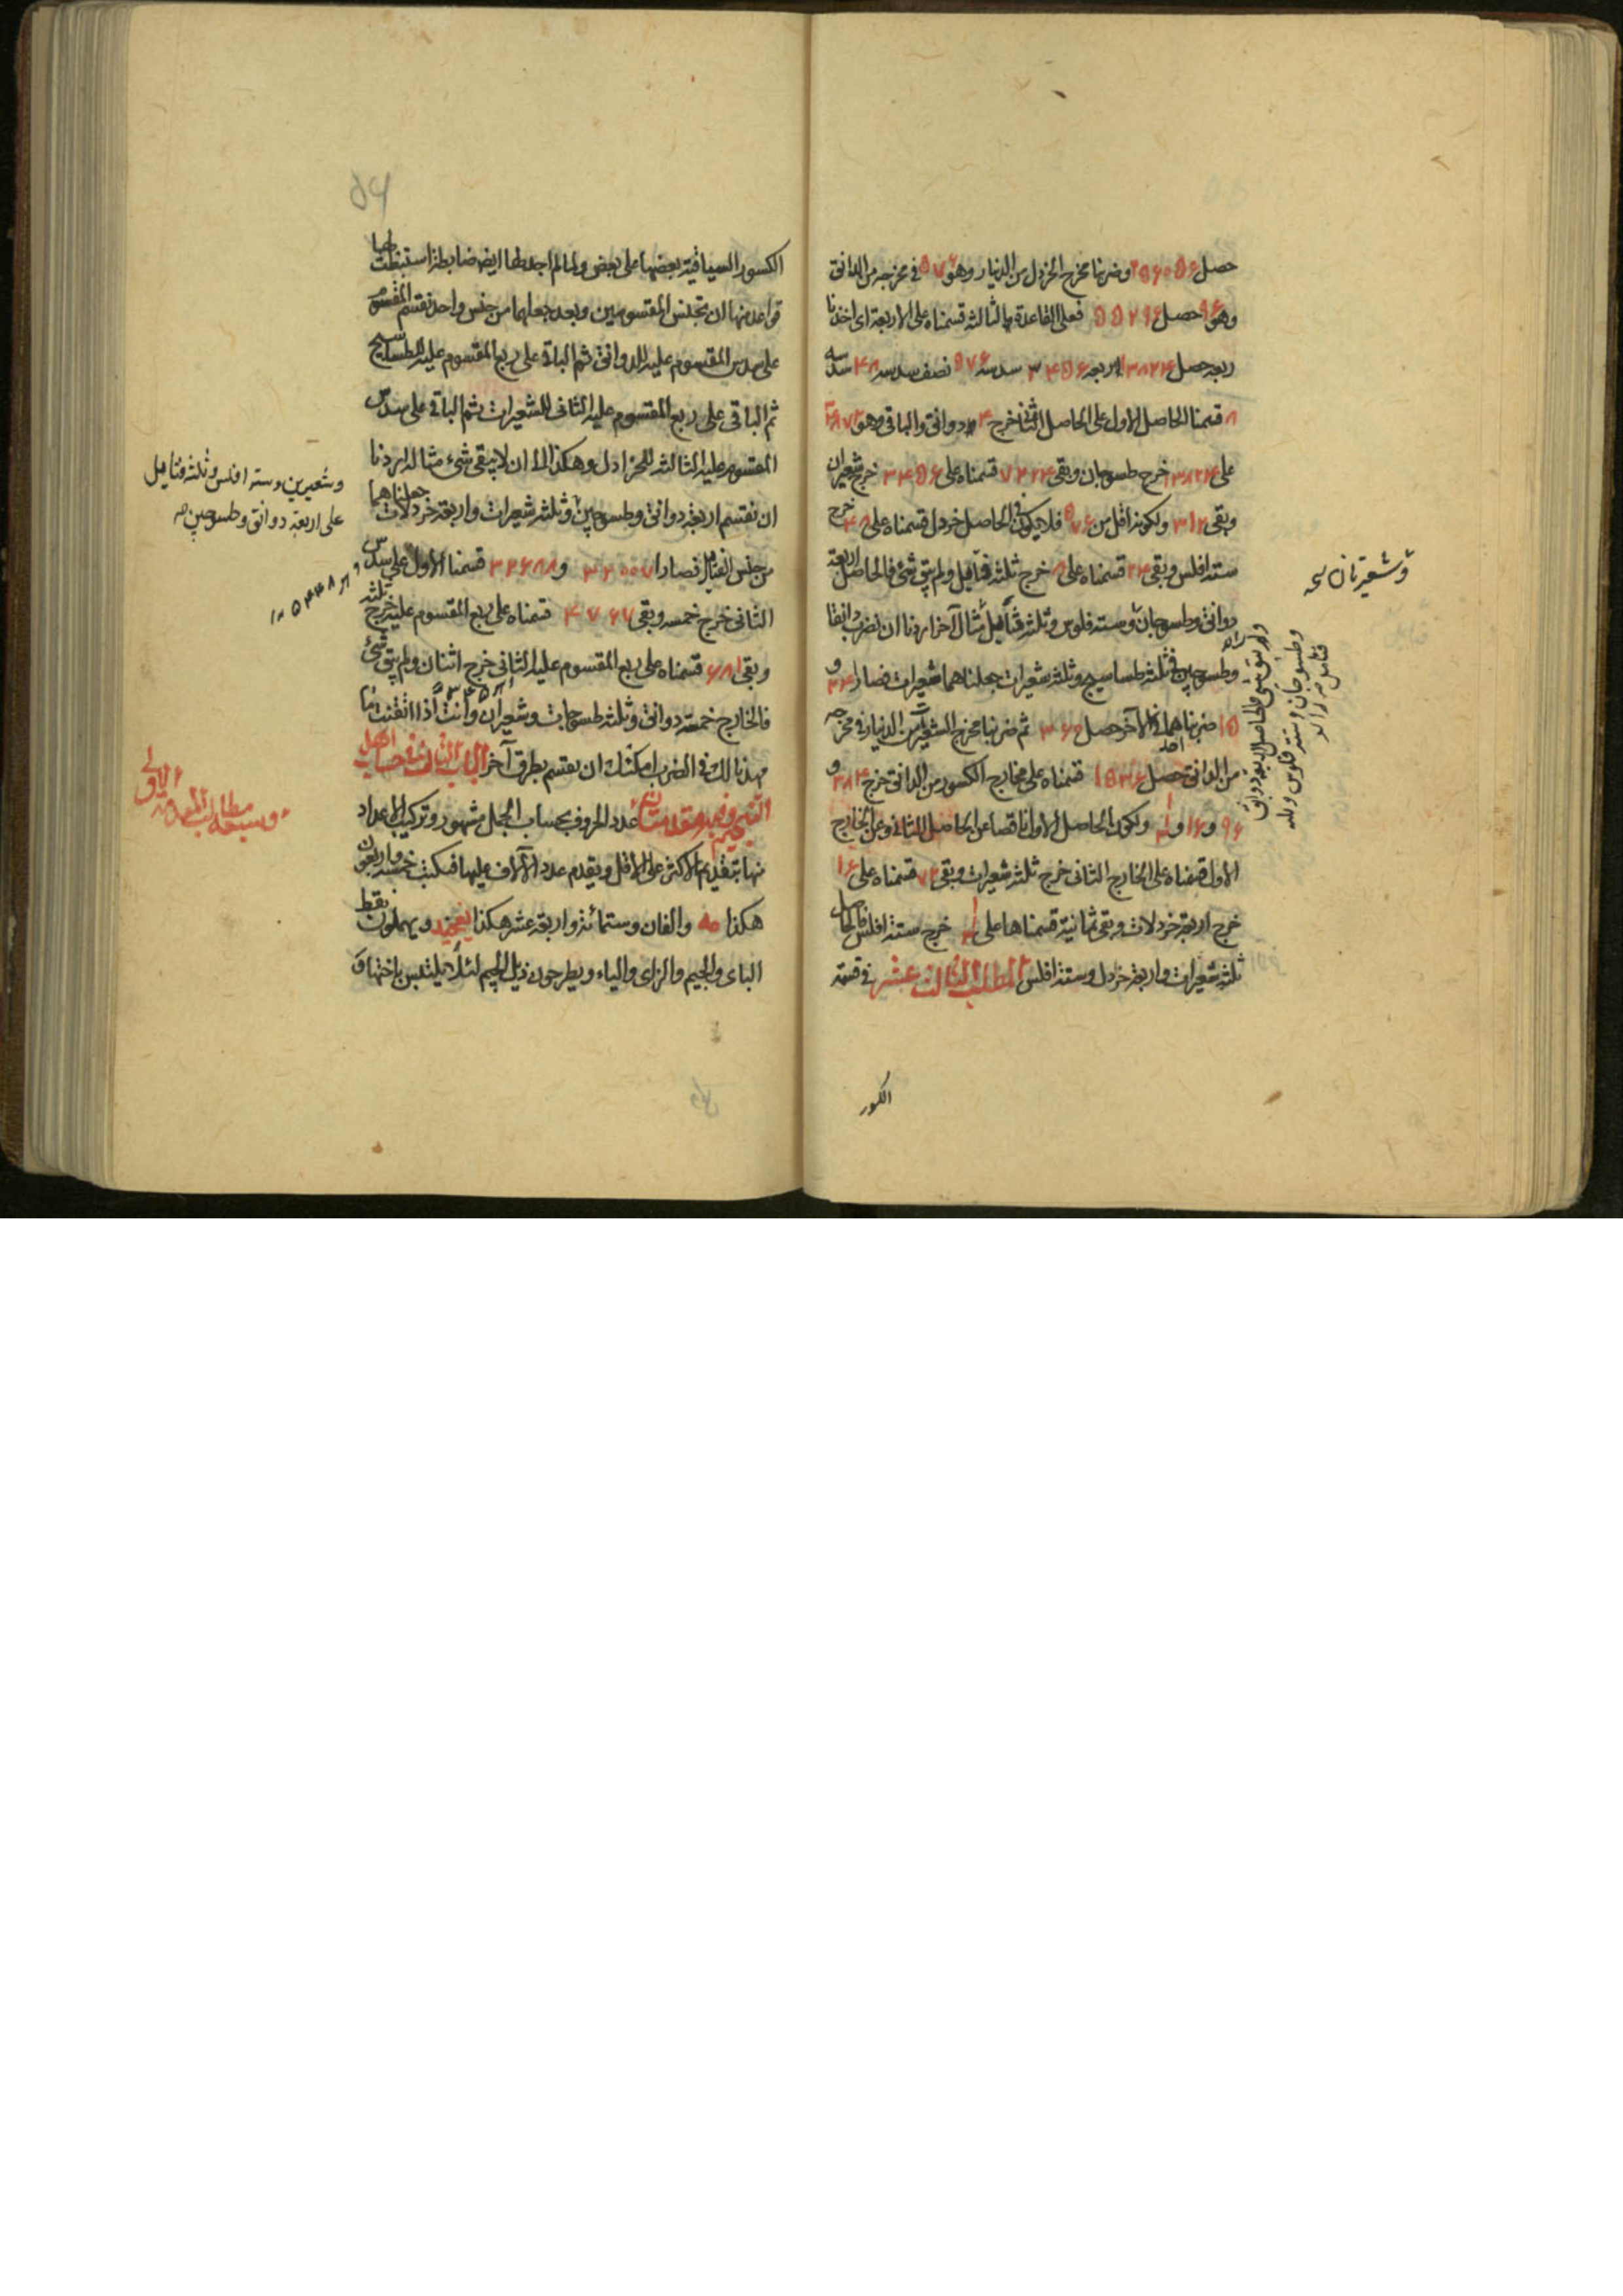 حصل ٢٥٦٠٥٦ وضربنا مخرج الخردل من الدينار وهو ٥٧٦ في مخرجه من الدانق
وهو ٩٦ حصل ٥٥٢٩٦ فعلى القاعدة الثالثة قسمناه على الاربعة اى اخذنا
ربعه حصل ١٣٨٢٤ ربعه ٣٤٥٦ سدسه ٥٧٦ نصف سدسه ٤٨ سدسه
٨ قسمنا الحاصل الاول على الحاصل الثانى خرج ٤ دوانق والباقى وهو
على ١٣٨٢٤ خرج طسوجان وبقى ٧٢٢٤ قسمناه على ٣٤٥٦ خرج شعيرتان
وبقى ٣١٢ ولكونه اقل من ٥٧٦ فلا يكون في الحاصل خردل قسمناه على ٤٨ خرج
ستة افلس وبقى ٢٤ قسمناه على ٨ خرج ثلثة فتائيل ولم يبق شئ فالحاصل اربعة
دوانق وطسوجان وستة فلوس وثلثة فتائيل مثال آخر اردنا ان نضرب دانقا
وطسوجين في ثلثة طساسيج وثلثة شعيرات جعلناهما شعيرات فصارا ٢٤ و
١٥ ضربنا احدهما في الآخر حصل ٣٦٠ ثم ضربنا مخرج الشعيرات من الدينار في مخرجه
من الدانق حصل ١٥٣٦ قسمناه على مخارج الكسور من الدانق خرج ٣٨٤ و
٩٦ و ١٦ و ولكون الحاصل الاول ناقصا عن الحاصل الثانى وعن الخارج
الاول قسمناه على الخارج الثانى خرج ثلثة شعيرات وبقى ٧٢ قسمناه على ١٦
خرج اربعة خردلات وبقى ثمانية قسمناها على خرج ستة افلس فالحاصل
ثلثة شعيرات واربعة خردل وستة افلس المطلب الثالث عشر في قسمة
الكسور
وشعيرتان صح
ولم يبق شئ فالحاصل اربعة دوانق
وطسوجان وستة فلوس وثلثة
فتائيل
٥٤
الكسور السياقية بعضها على بعض ولما لم اجد لها ايضا ضابطة استنبطت لها
قواعد منها ان تجنس المقسومين وبعد جعلهما من جنس واحد نقسم المقسوم
على سدس المقسوم عليه للدوانق ثم الباقى على ربع المقسوم عليه للطساسيج
ثم الباقى على ربع المقسوم عليه الثانى للشعيرات ثم الباقى على سدس
المقسوم عليه الثالث للخرادل وهكذا الى ان لا يبقى شئ مثاله اردنا
ان نقسم اربعة دوانق وطسوجين وثلثة شعيرات واربعة خردلات جعلناهما
من جنس الفتائيل فصارا و ٣٢٦٨٨ قسمنا الاول على سدس
الثانى خرج خمسة وبقى ٤٧٦٧ قسمناه على ربع المقسوم عليه خرج ثلثة
وبقى ٦٨١ قسمناه على ربع المقسوم عليه الثانى خرج اثنان ولم يبق شئ
فالخارج خمسة دوانق وثلثة طسوجات وشعيرتان وانت اذا اتقنت ما
مهدنا لك في الضرب امكنك ان يقسم بطرق آخر الباب الثالث في حساب اهل
التنجيم وفيه مقدمتان عدد الحروف بحساب الجمل مشهور وتركيب الاعداد
منها بتقديم الاكثر على الاقل ويقدم عدد الآلاف عليها فيكتب خمسة واربعون
هكذا مه والفان وستمائة واربعة عشر هكذا بغخيد ويهملون نقط
الباى والجيم والزاى والياء ويطرحون ذيل الجيم لئلا يلتبس باختها ق
وشعيرين وستة افلس وثلثة فتائيل
على اربعة دوانق وطسوجين صح
وسبعة مطالب المقدمة
الاولى